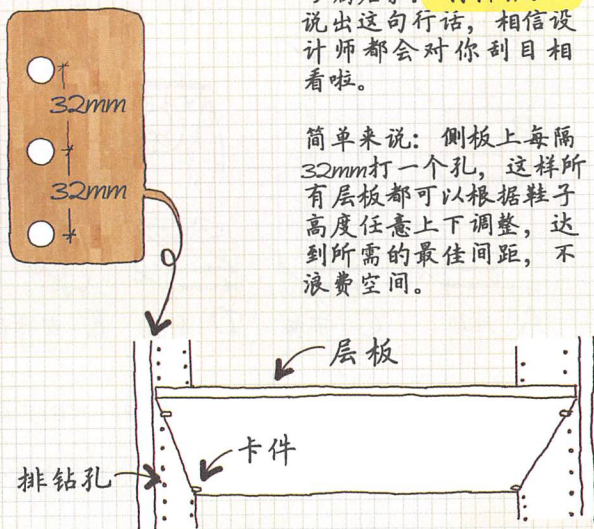 说出这句行话，相信设
计师都会对你刮目相
看啦。
简单来说：侧板上每隔
32mm打一个孔，这样所
有层板都可以根据鞋子
高度任意上下调整，达
到所需的最佳间距，不
浪费空间。
32mm
32mm
层板
卡件
排钻孔